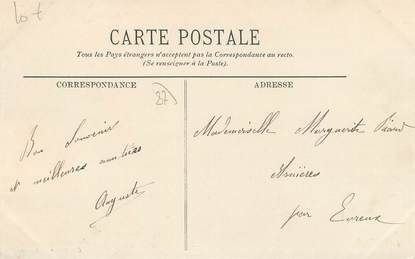 Lot
CARTE POSTALE
Tous les Pays étrangers n'acceptent pas la Correspondance au recto.
(Se renseigner à la Poste).
CORRESPONDANCE
87
ADRESSE
Bon Souvenir
et meilleures amitiés
Auguste
Mademoiselle Marguerite Picard
Asnières
par Evreux